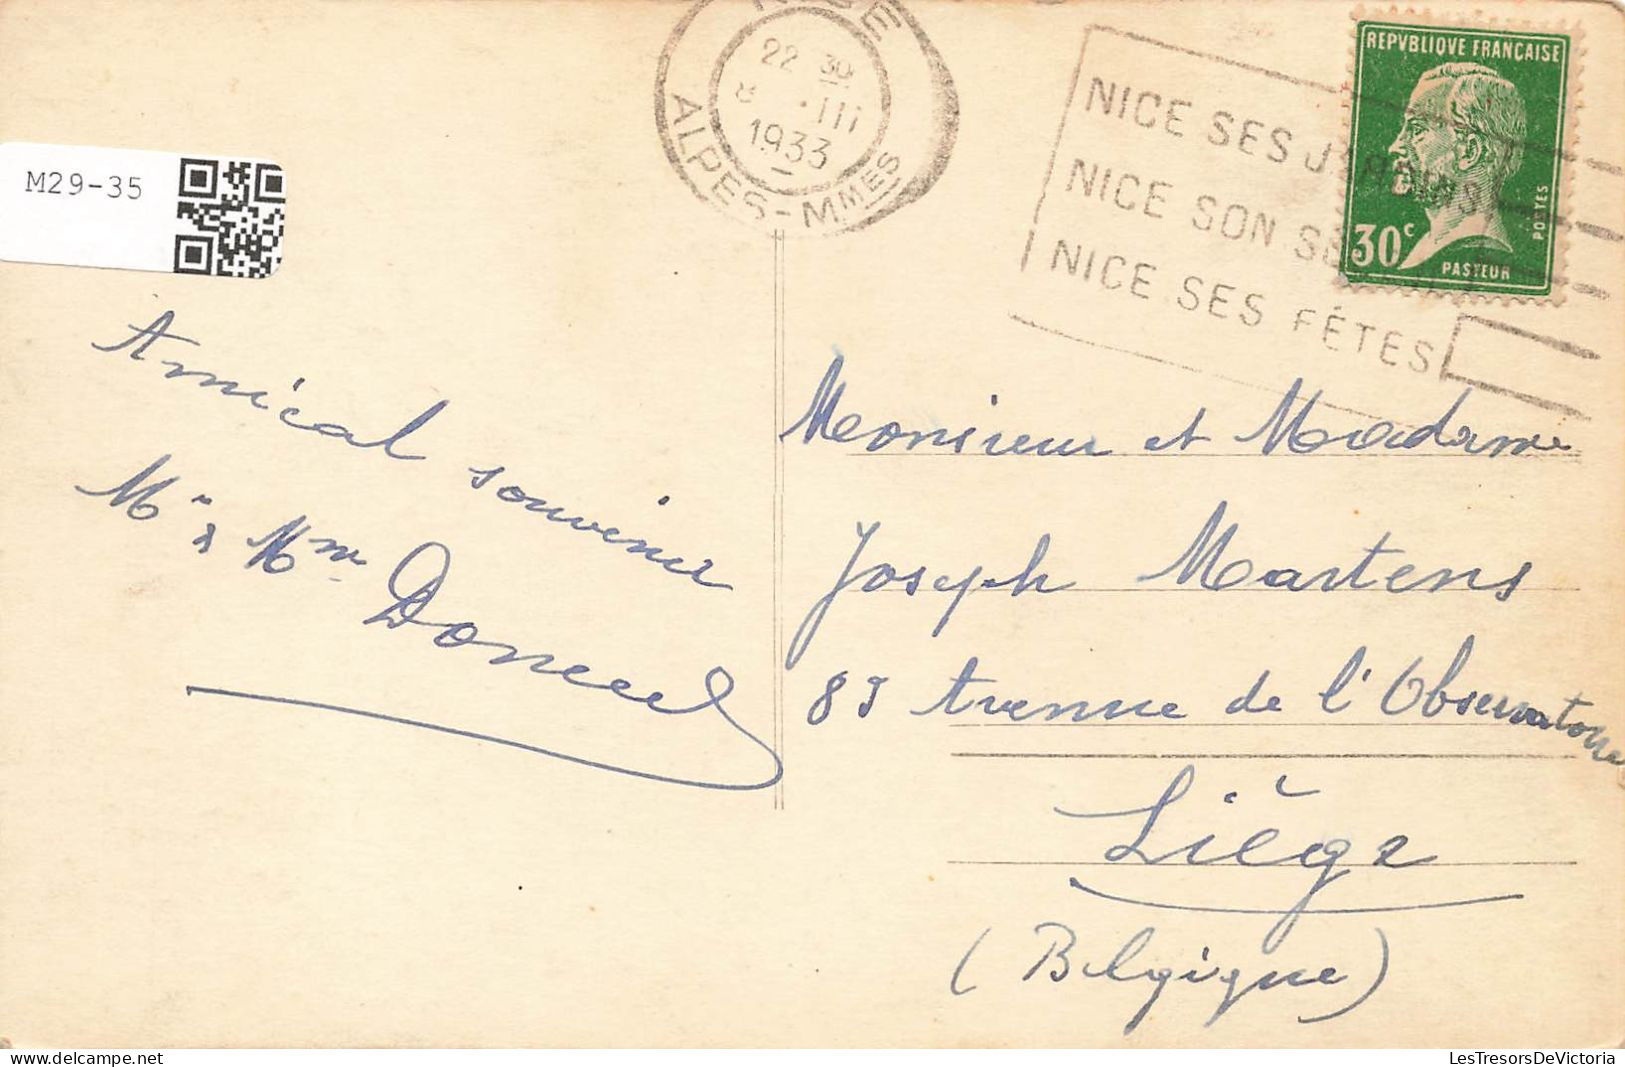 22 30
8 III
1933
ALPES-MMES
NICE SES JARDINS
NICE SON
NICE SES FÊTES
REPVBLIQVE FRANCAISE
30c
POSTES
PASTEUR
M29-35
Amical souvenir
Mr & Mme
Monsieur et Madame
Joseph Martens
89 Avenue de l'Observatoire
Liège
(Belgique)
LesTresorsDeVictoria